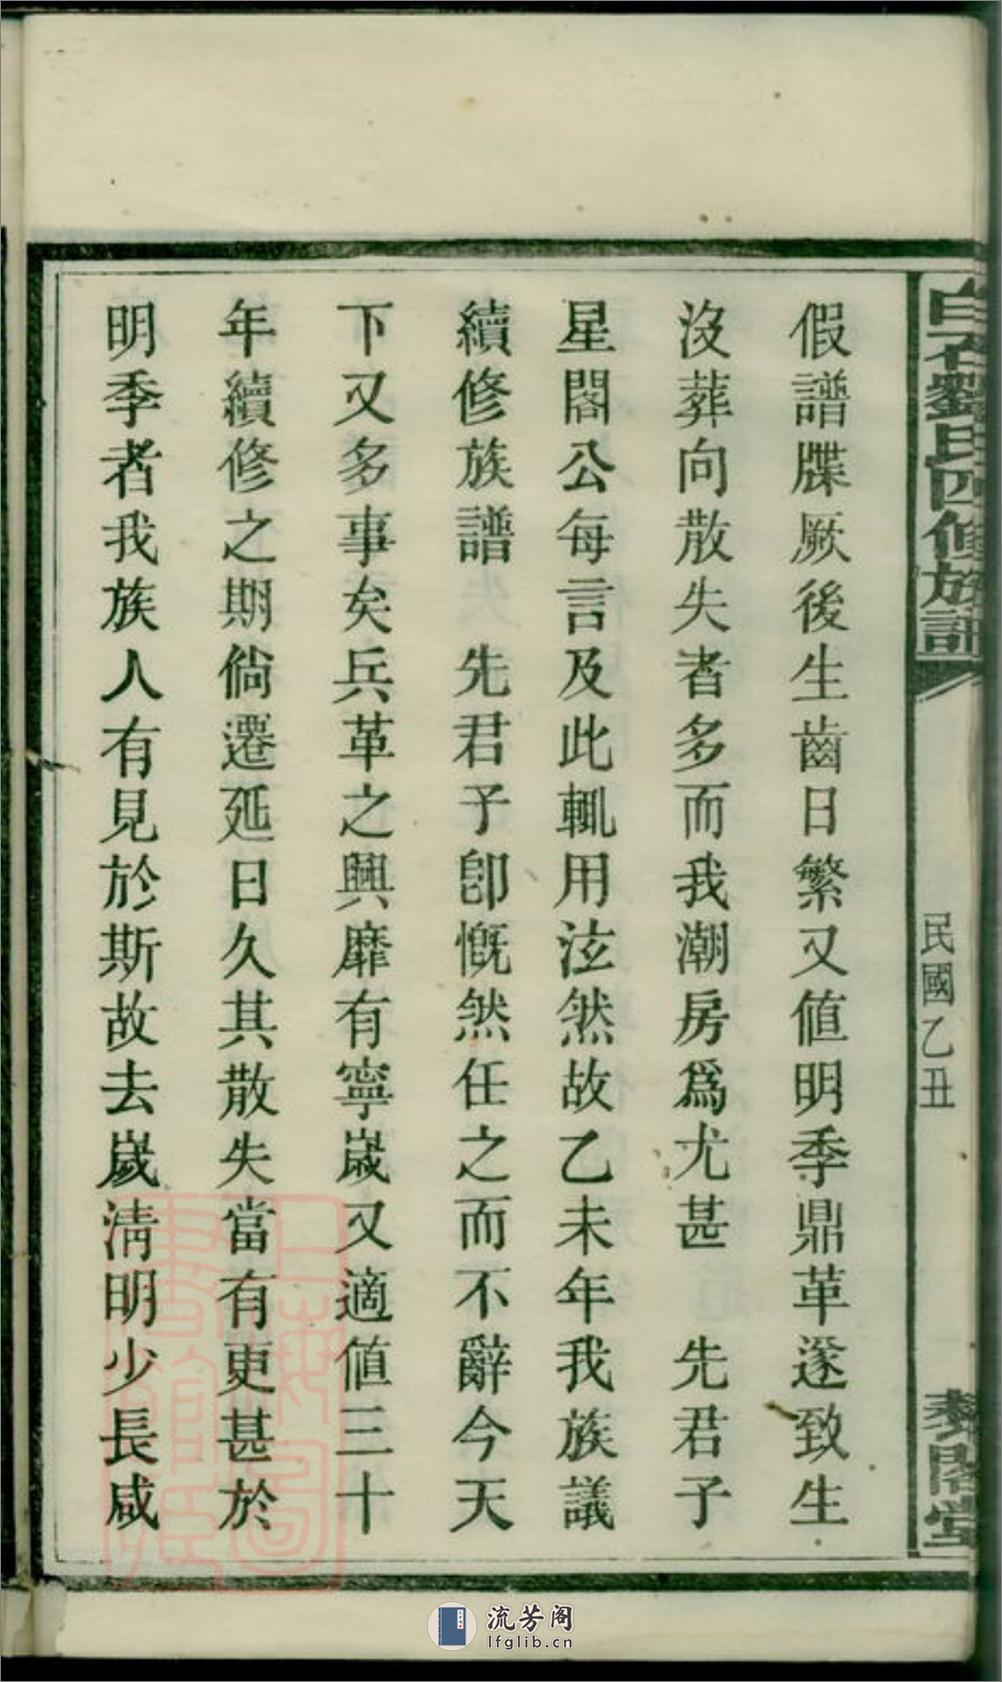 白石劉氏四修族譜
民國乙丑
藜閣堂
假譜牒厥後生齒日繁又值明季鼎革遂致生
沒葬向散失者多而我潮房爲尤甚　先君子
星閣公每言及此輒用泣然故乙未年我族議
續修族譜　先君子卽慨然任之而不辭今天
下又多事矣兵革之興靡有寧歲又適值三十
年續修之期倘遷延日久其散失當有更甚於
明季者我族人有見於斯故去歲淸明少長咸
上海圖書館藏
流芳阁
lfglib.cn